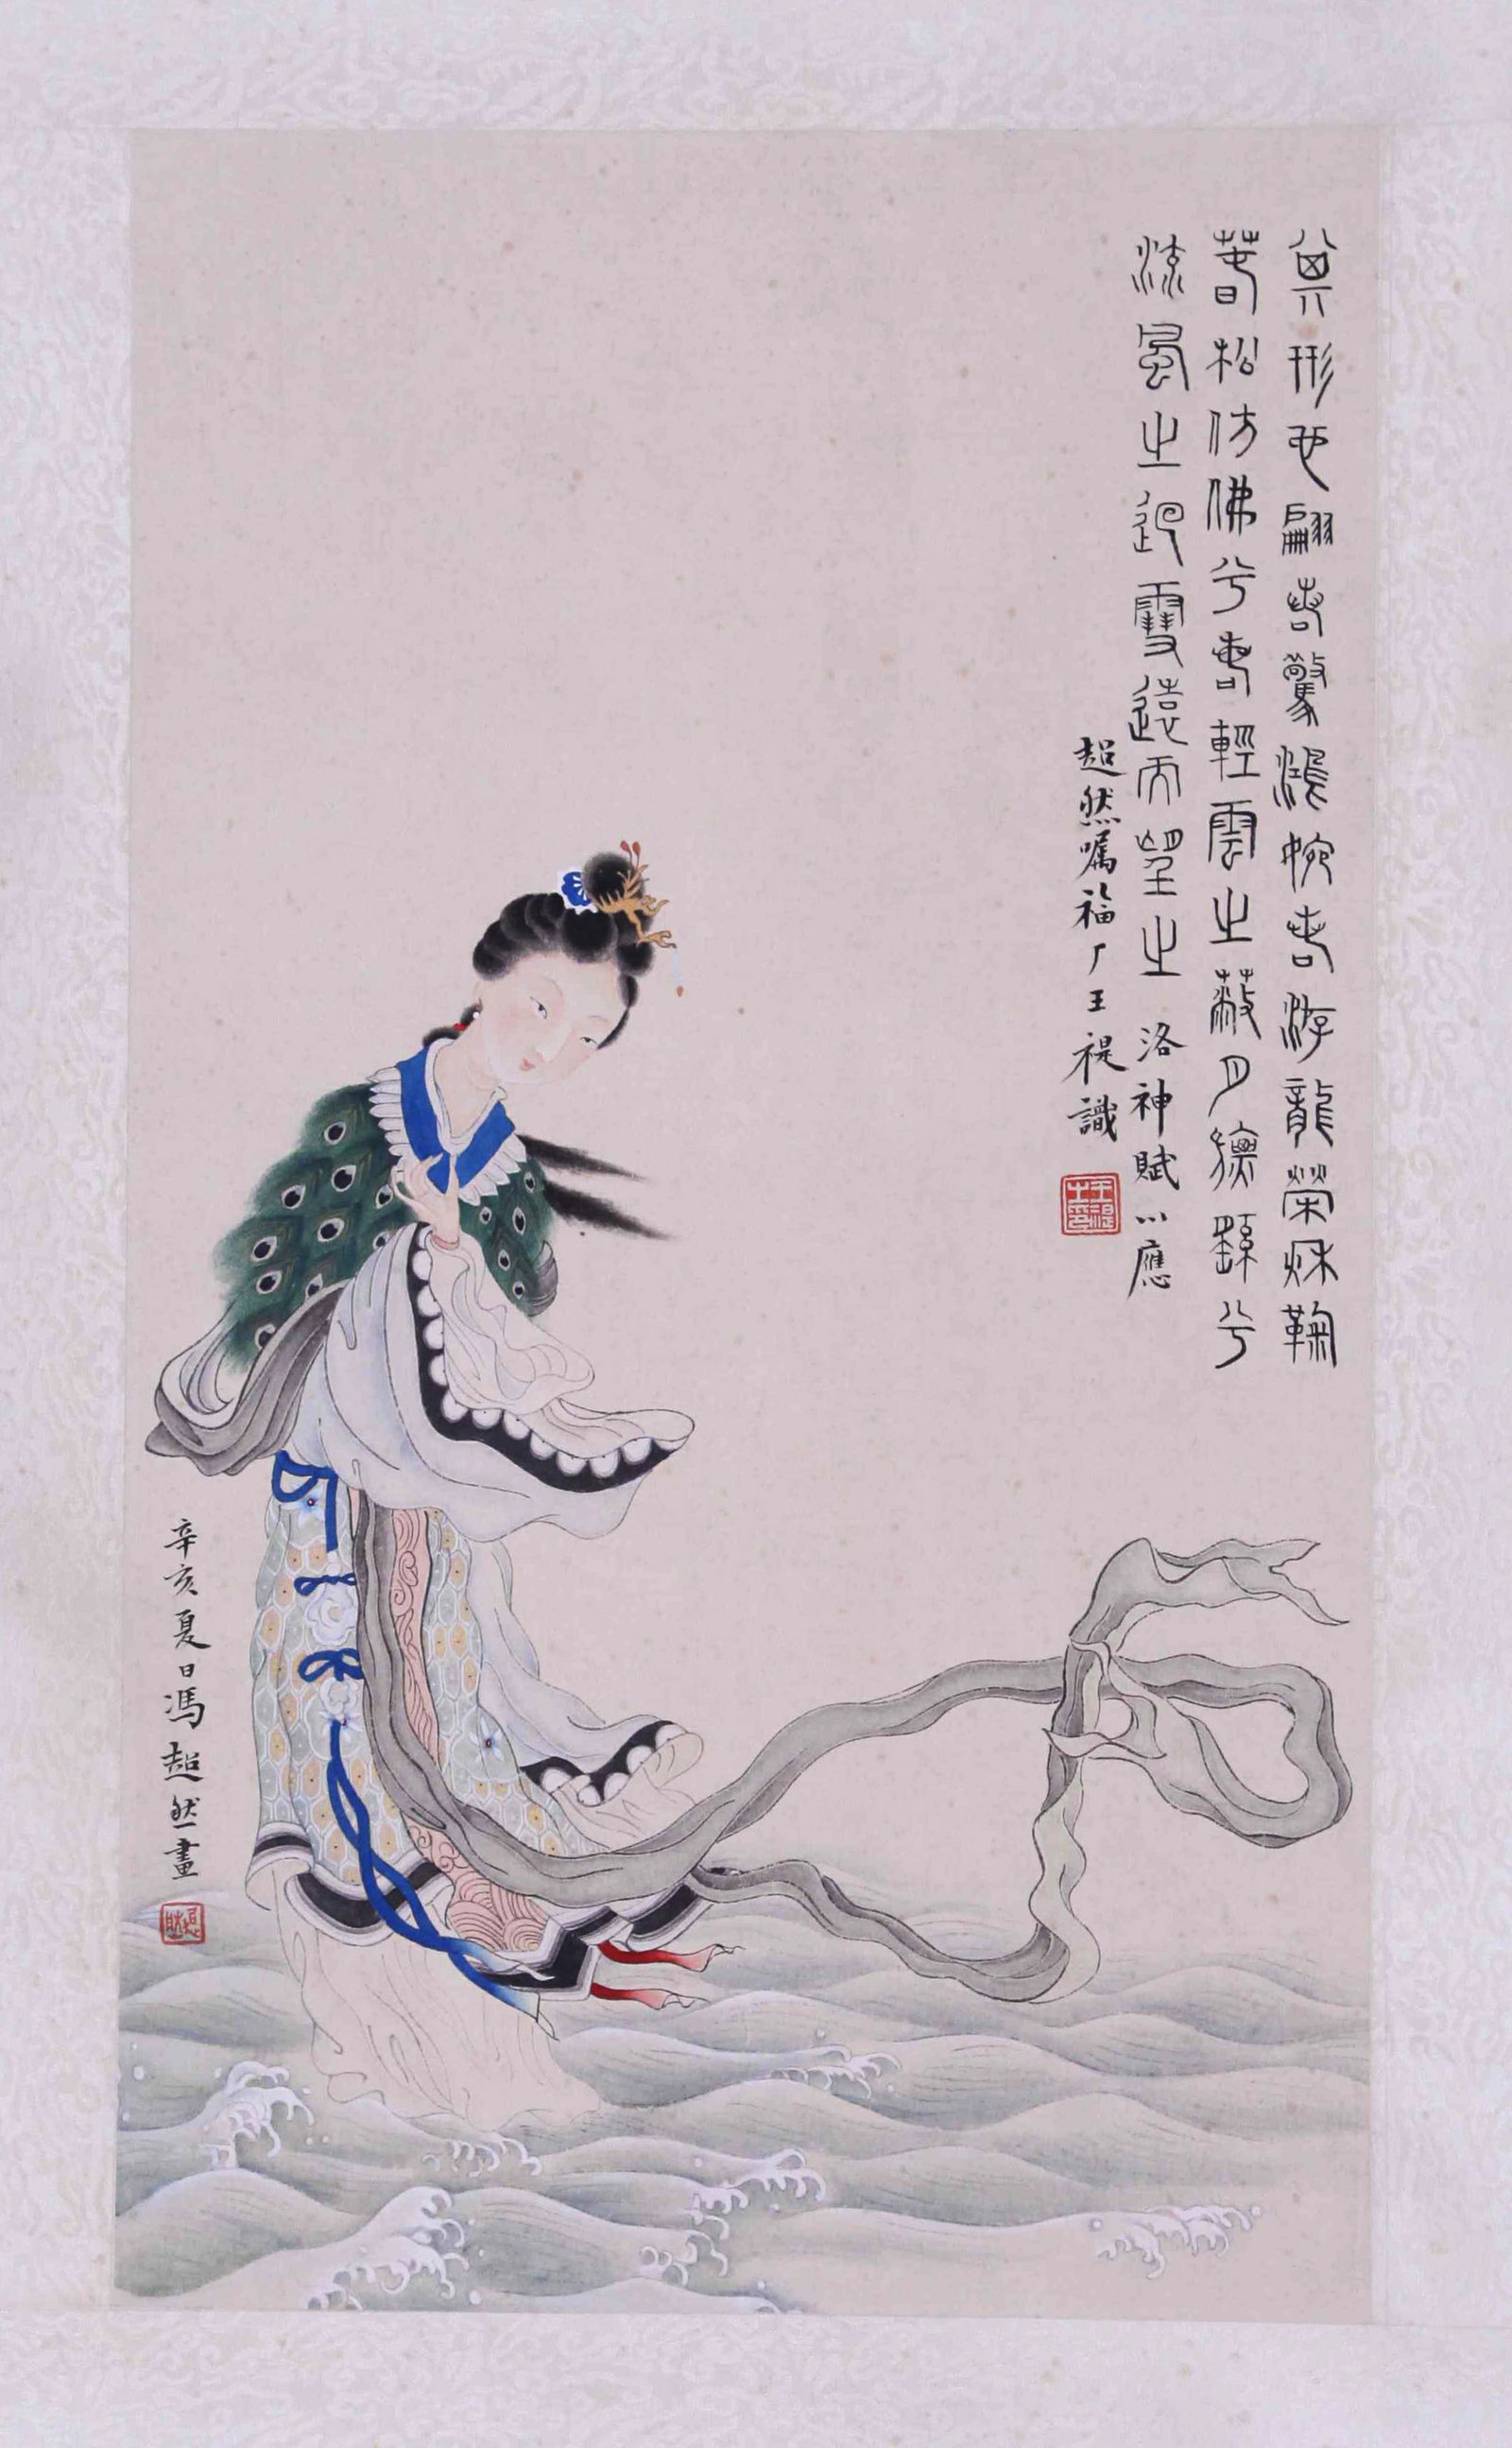 其形也翩若驚鴻婉若游龍榮秌鞠
萅松仿佛兮若輕雲之蔽月飄飖兮
流風之迴雪遠而望之 洛神賦以應
超然囑福厂王禔識
辛亥夏日馮超然畫
超然